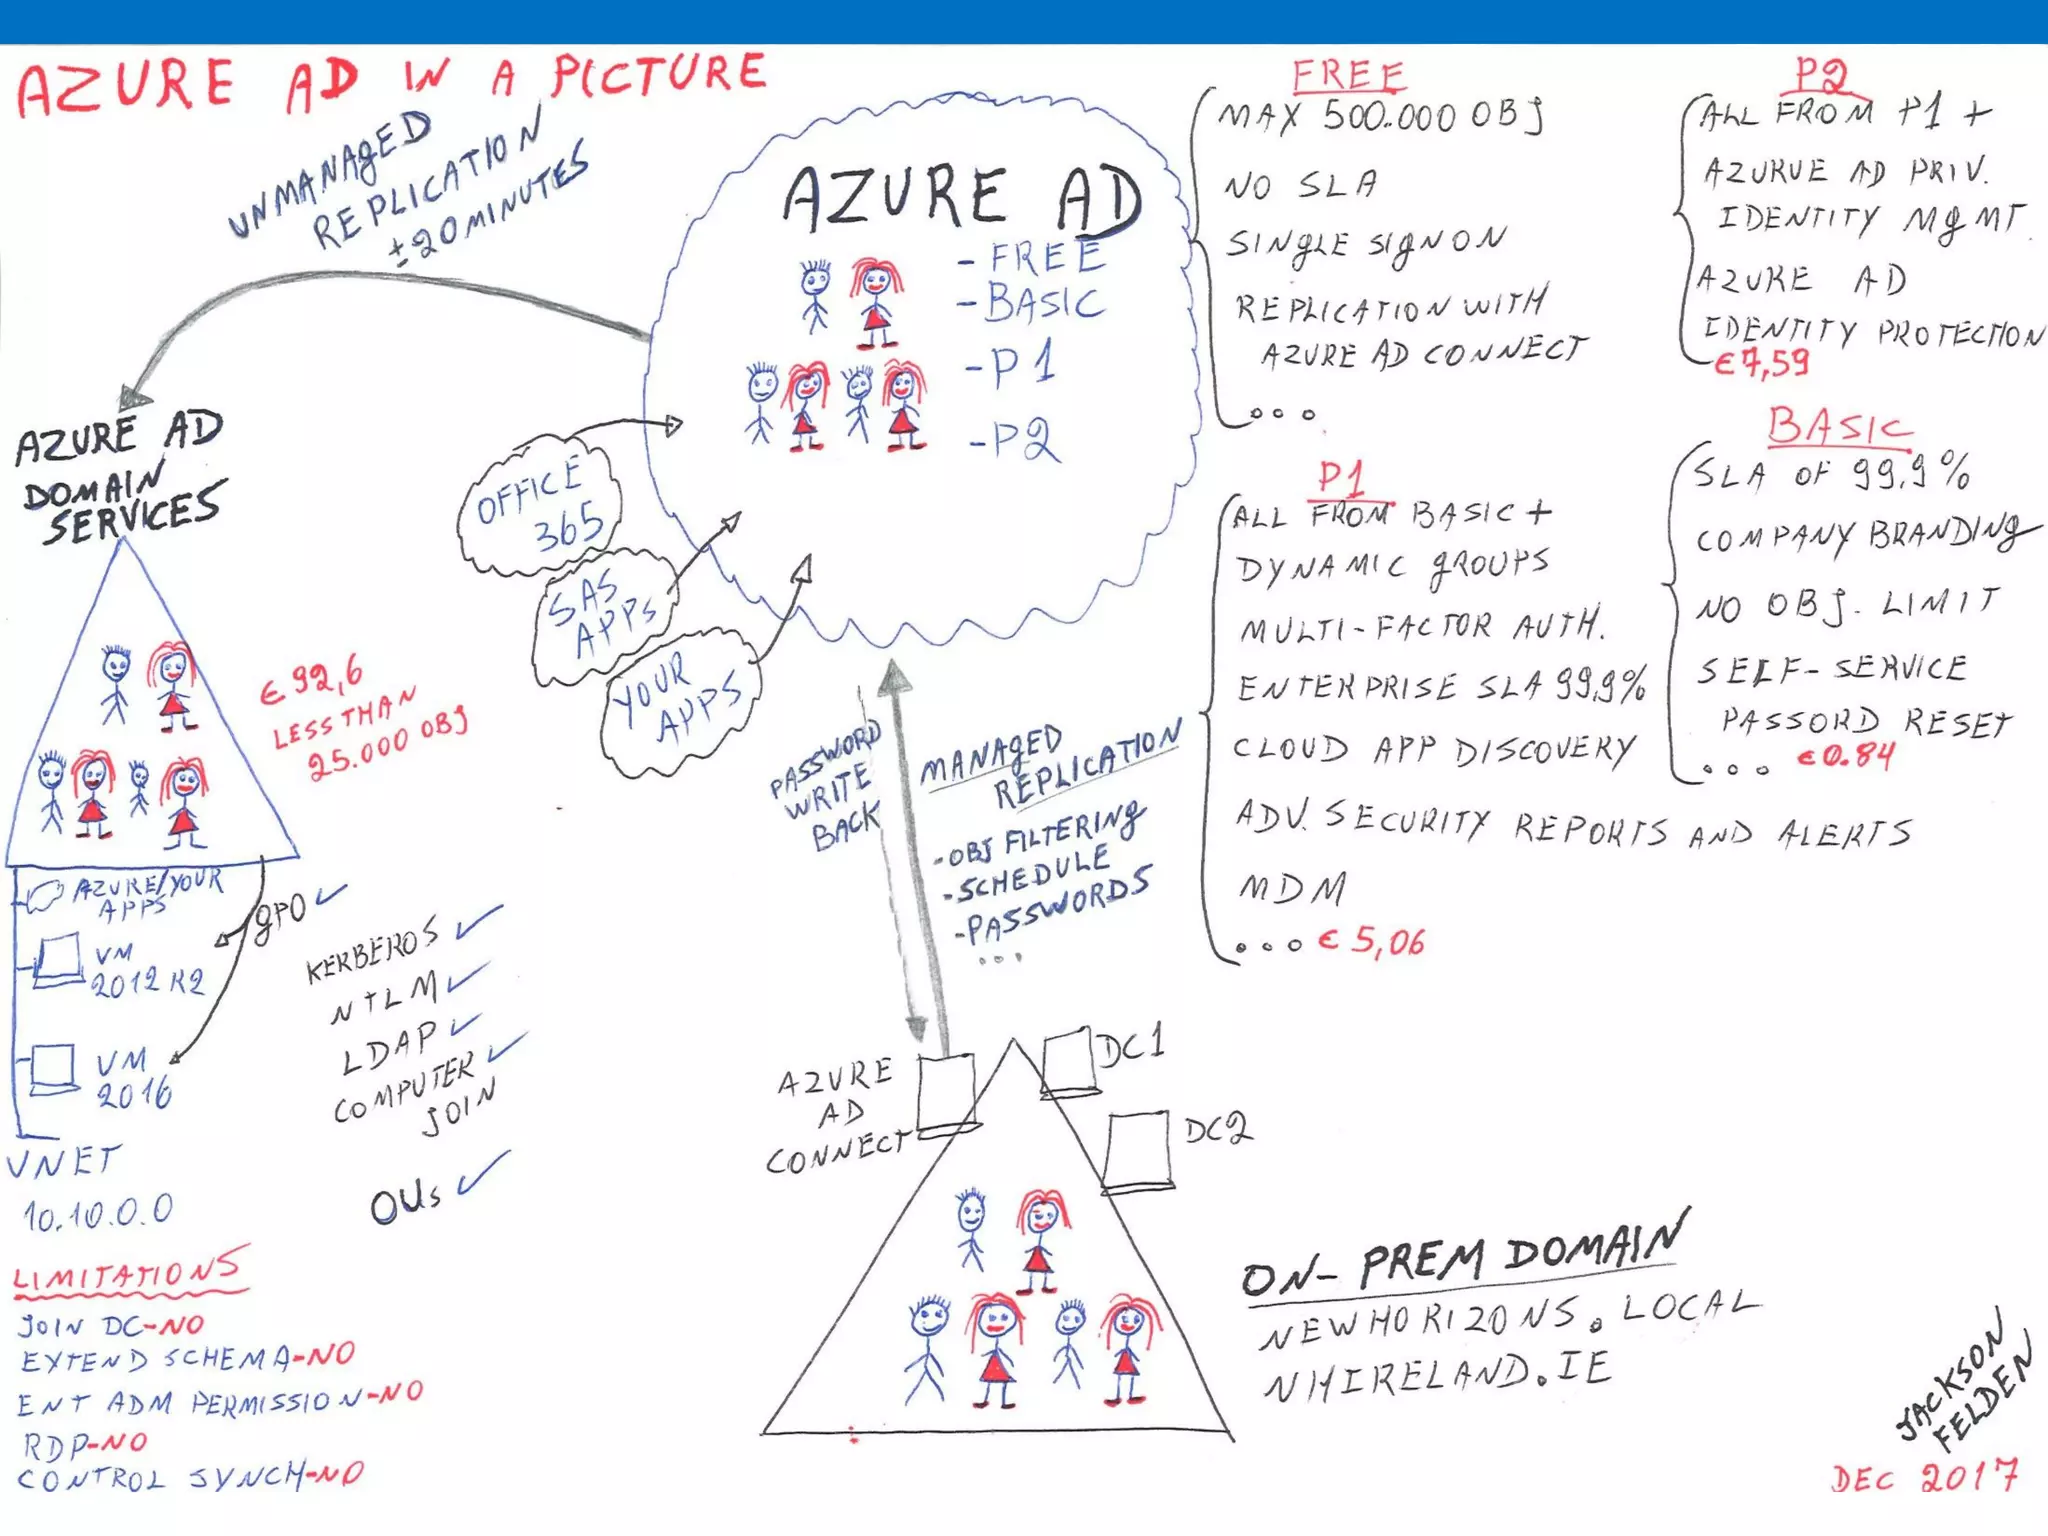 AZURE AD IN A PICTURE
UNMANAGED
REPLICATION
±20MINUTES
AZURE AD
DOMAIN
SERVICES
€92,6
LESS THAN
25.000 OBJ
AZURE/YOUR
APPS
GPO ✓
VM
2012 R2
VM
2016
VNET
10.10.0.0
KERBEROS ✓
NTLM ✓
LDAP ✓
COMPUTER ✓
JOIN
OUs ✓
LIMITATIONS
JOIN DC-NO
EXTEND SCHEMA-NO
ENT ADM PERMISSION-NO
RDP-NO
CONTROL SYNCH-NO
AZURE AD
- FREE
- BASIC
- P1
- P2
OFFICE
365
SAS
APPS
YOUR
APPS
PASSWORD
WRITE
BACK
MANAGED
REPLICATION
- OBJ FILTERING
- SCHEDULE
- PASSWORDS
...
AZURE
AD
CONNECT
DC1
DC2
ON-PREM DOMAIN
NEWHORIZONS.LOCAL
NHIRELAND.IE
FREE
MAX 500.000 OBJ
NO SLA
SINGLE SIGN ON
REPLICATION WITH
AZURE AD CONNECT
...
P1
ALL FROM BASIC +
DYNAMIC GROUPS
MULTI-FACTOR AUTH.
ENTERPRISE SLA 99,9%
CLOUD APP DISCOVERY
ADV. SECURITY REPORTS AND ALERTS
MDM
... € 5,06
P2
ALL FROM P1 +
AZURUE AD PRIV.
IDENTITY MGMT.
AZURE AD
IDENTITY PROTECTION
€7,59
BASIC
SLA OF 99,9%
COMPANY BRANDING
NO OBJ. LIMIT
SELF-SERVICE
PASSORD RESET
... €0.84
JACKSON
FELDEN
DEC 2017